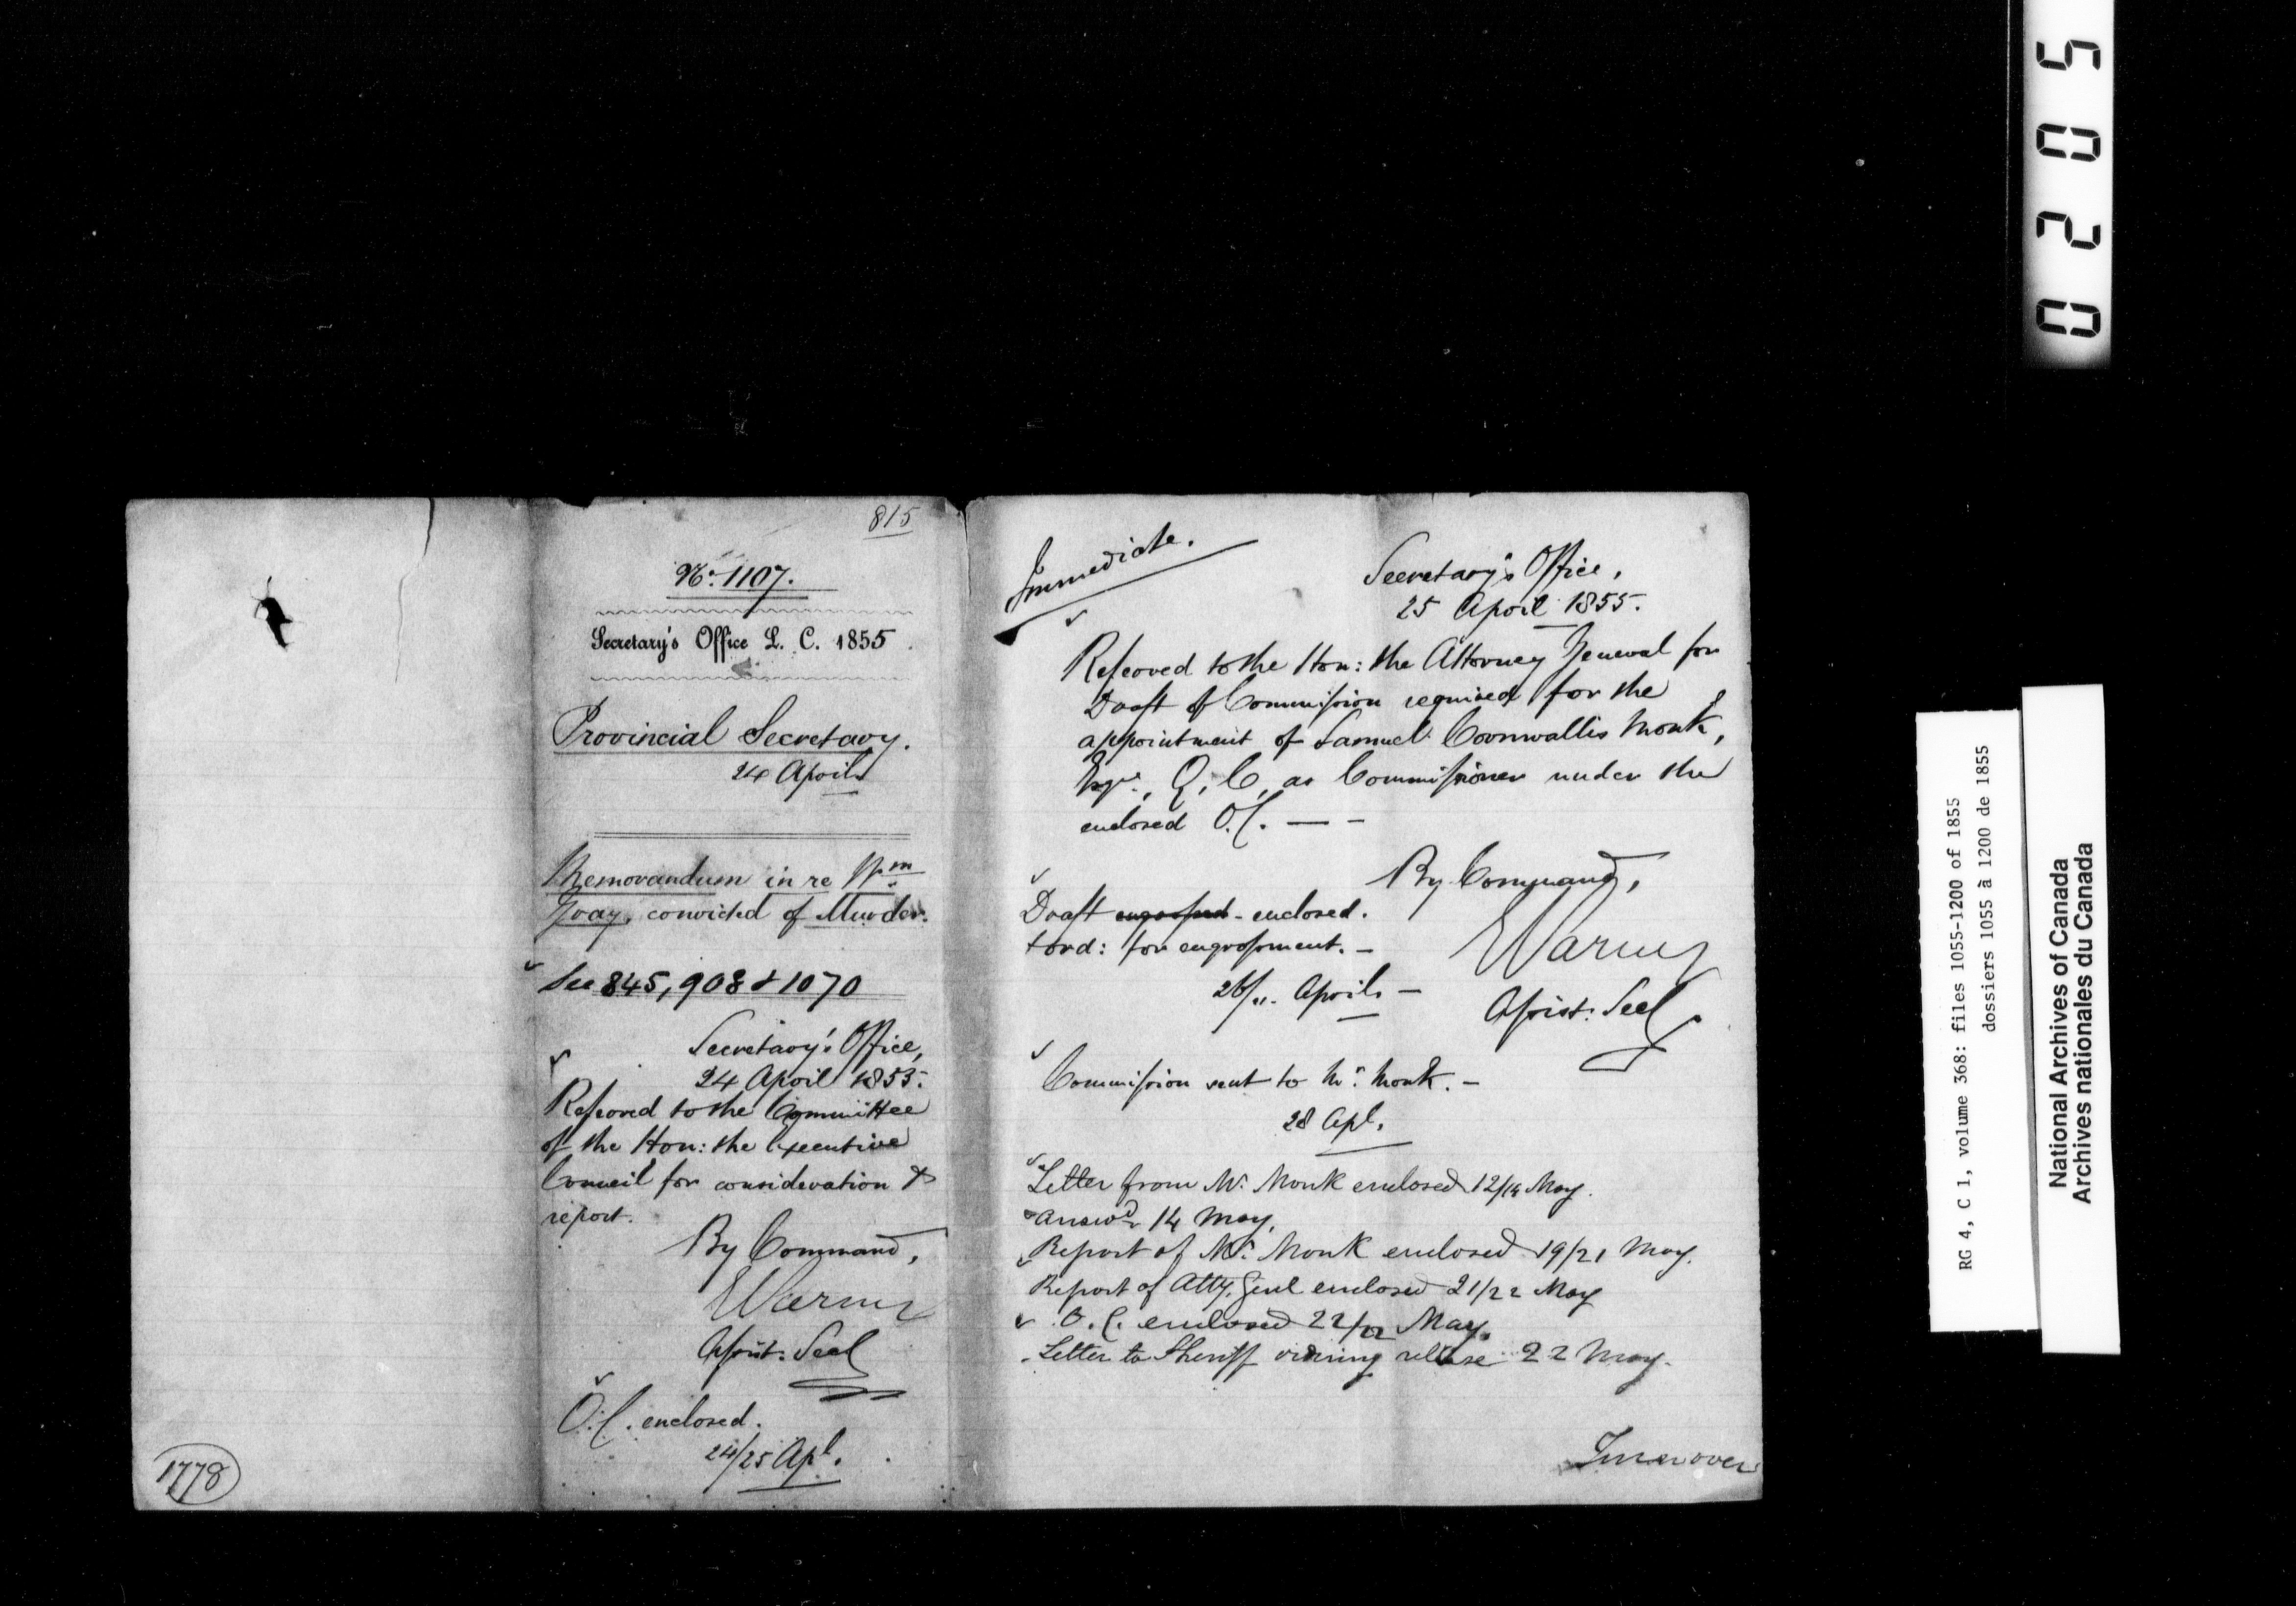 815
No. 1107.
Secretary's Office L. C. 1855
Provincial Secretary.
24 April
Memorandum in re Wm
Gray, convicted of Murder.
See 845, 908 & 1070
Secretary's Office,
24 April 1855.
Referred to the Committee
of the Hon: the Executive
Council for consideration &
report.
By Command,
Assist: Secy
O.C. enclosed.
24/25 Apl.
1778
Immediate.
Secretary's Office,
25 April 1855.
Referred to the Hon: the Attorney General for
Draft of Commission required for the
appointment of Samuel Cornwallis Monk,
Esqre., Q.C, as Commissioner under the
enclosed O.C. — –
By Command,
Draft engrossed - enclosed.
& ord: for engrossment. –
Assist: Secy
26/". April –
Commission sent to Mr. Monk. –
28 Apl.
Letter from Mr. Monk enclosed 12/14 May.
Answd 14 May.
Report of Mr. Monk enclosed 19/21 May.
Report of Atty. Genl enclosed 21/22 May
O.C. enclosed 22/22 May.
Letter to Sheriff ordering release 22 May.
Turn over
0205
RG 4, C 1, volume 368: files 1055-1200 of 1855
dossiers 1055 à 1200 de 1855
National Archives of Canada
Archives nationales du Canada